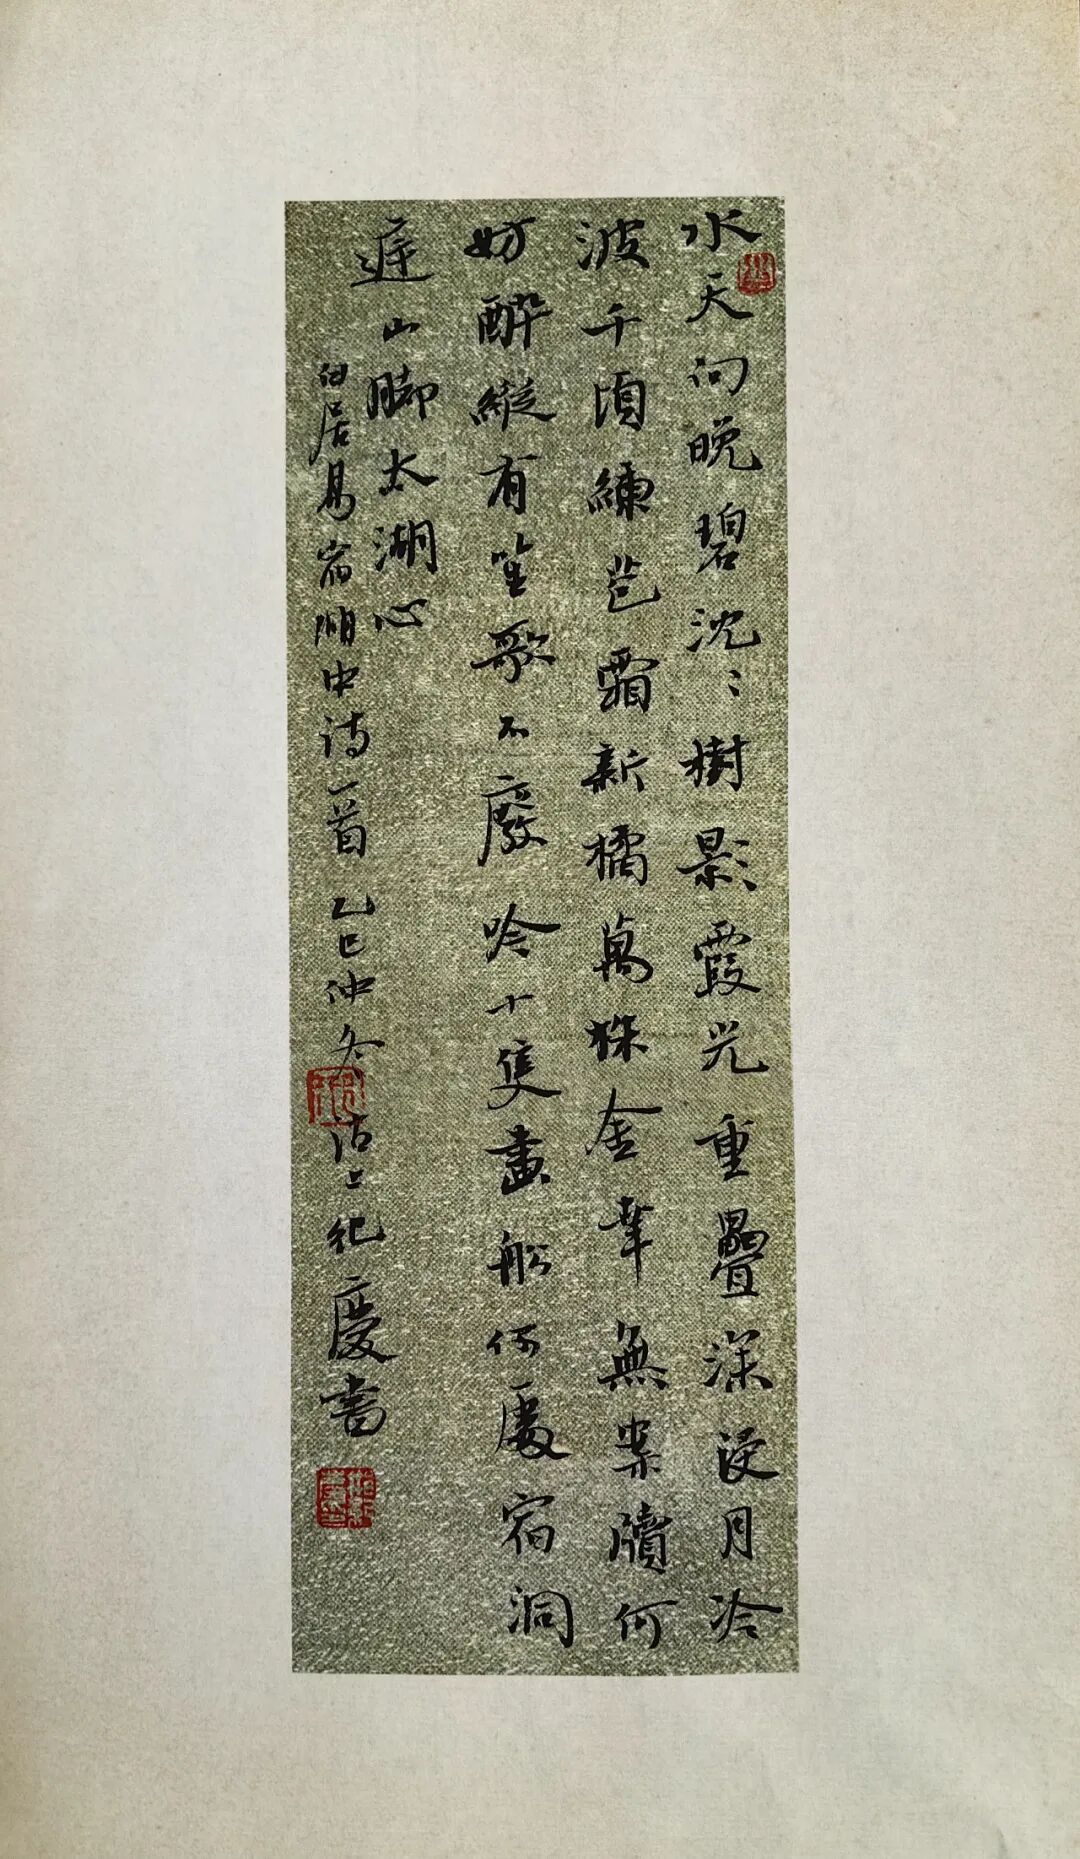 水天向晚碧沈〻樹影霞光重疊深浸月冷
波千頃練苞霜新橘萬株金幸無案牘何
妨醉縱有笙歌不廢吟十隻畫船何處宿洞
庭山脚太湖心
白居易宿湖中詩一首 乙巳仲冬沽上紀慶書